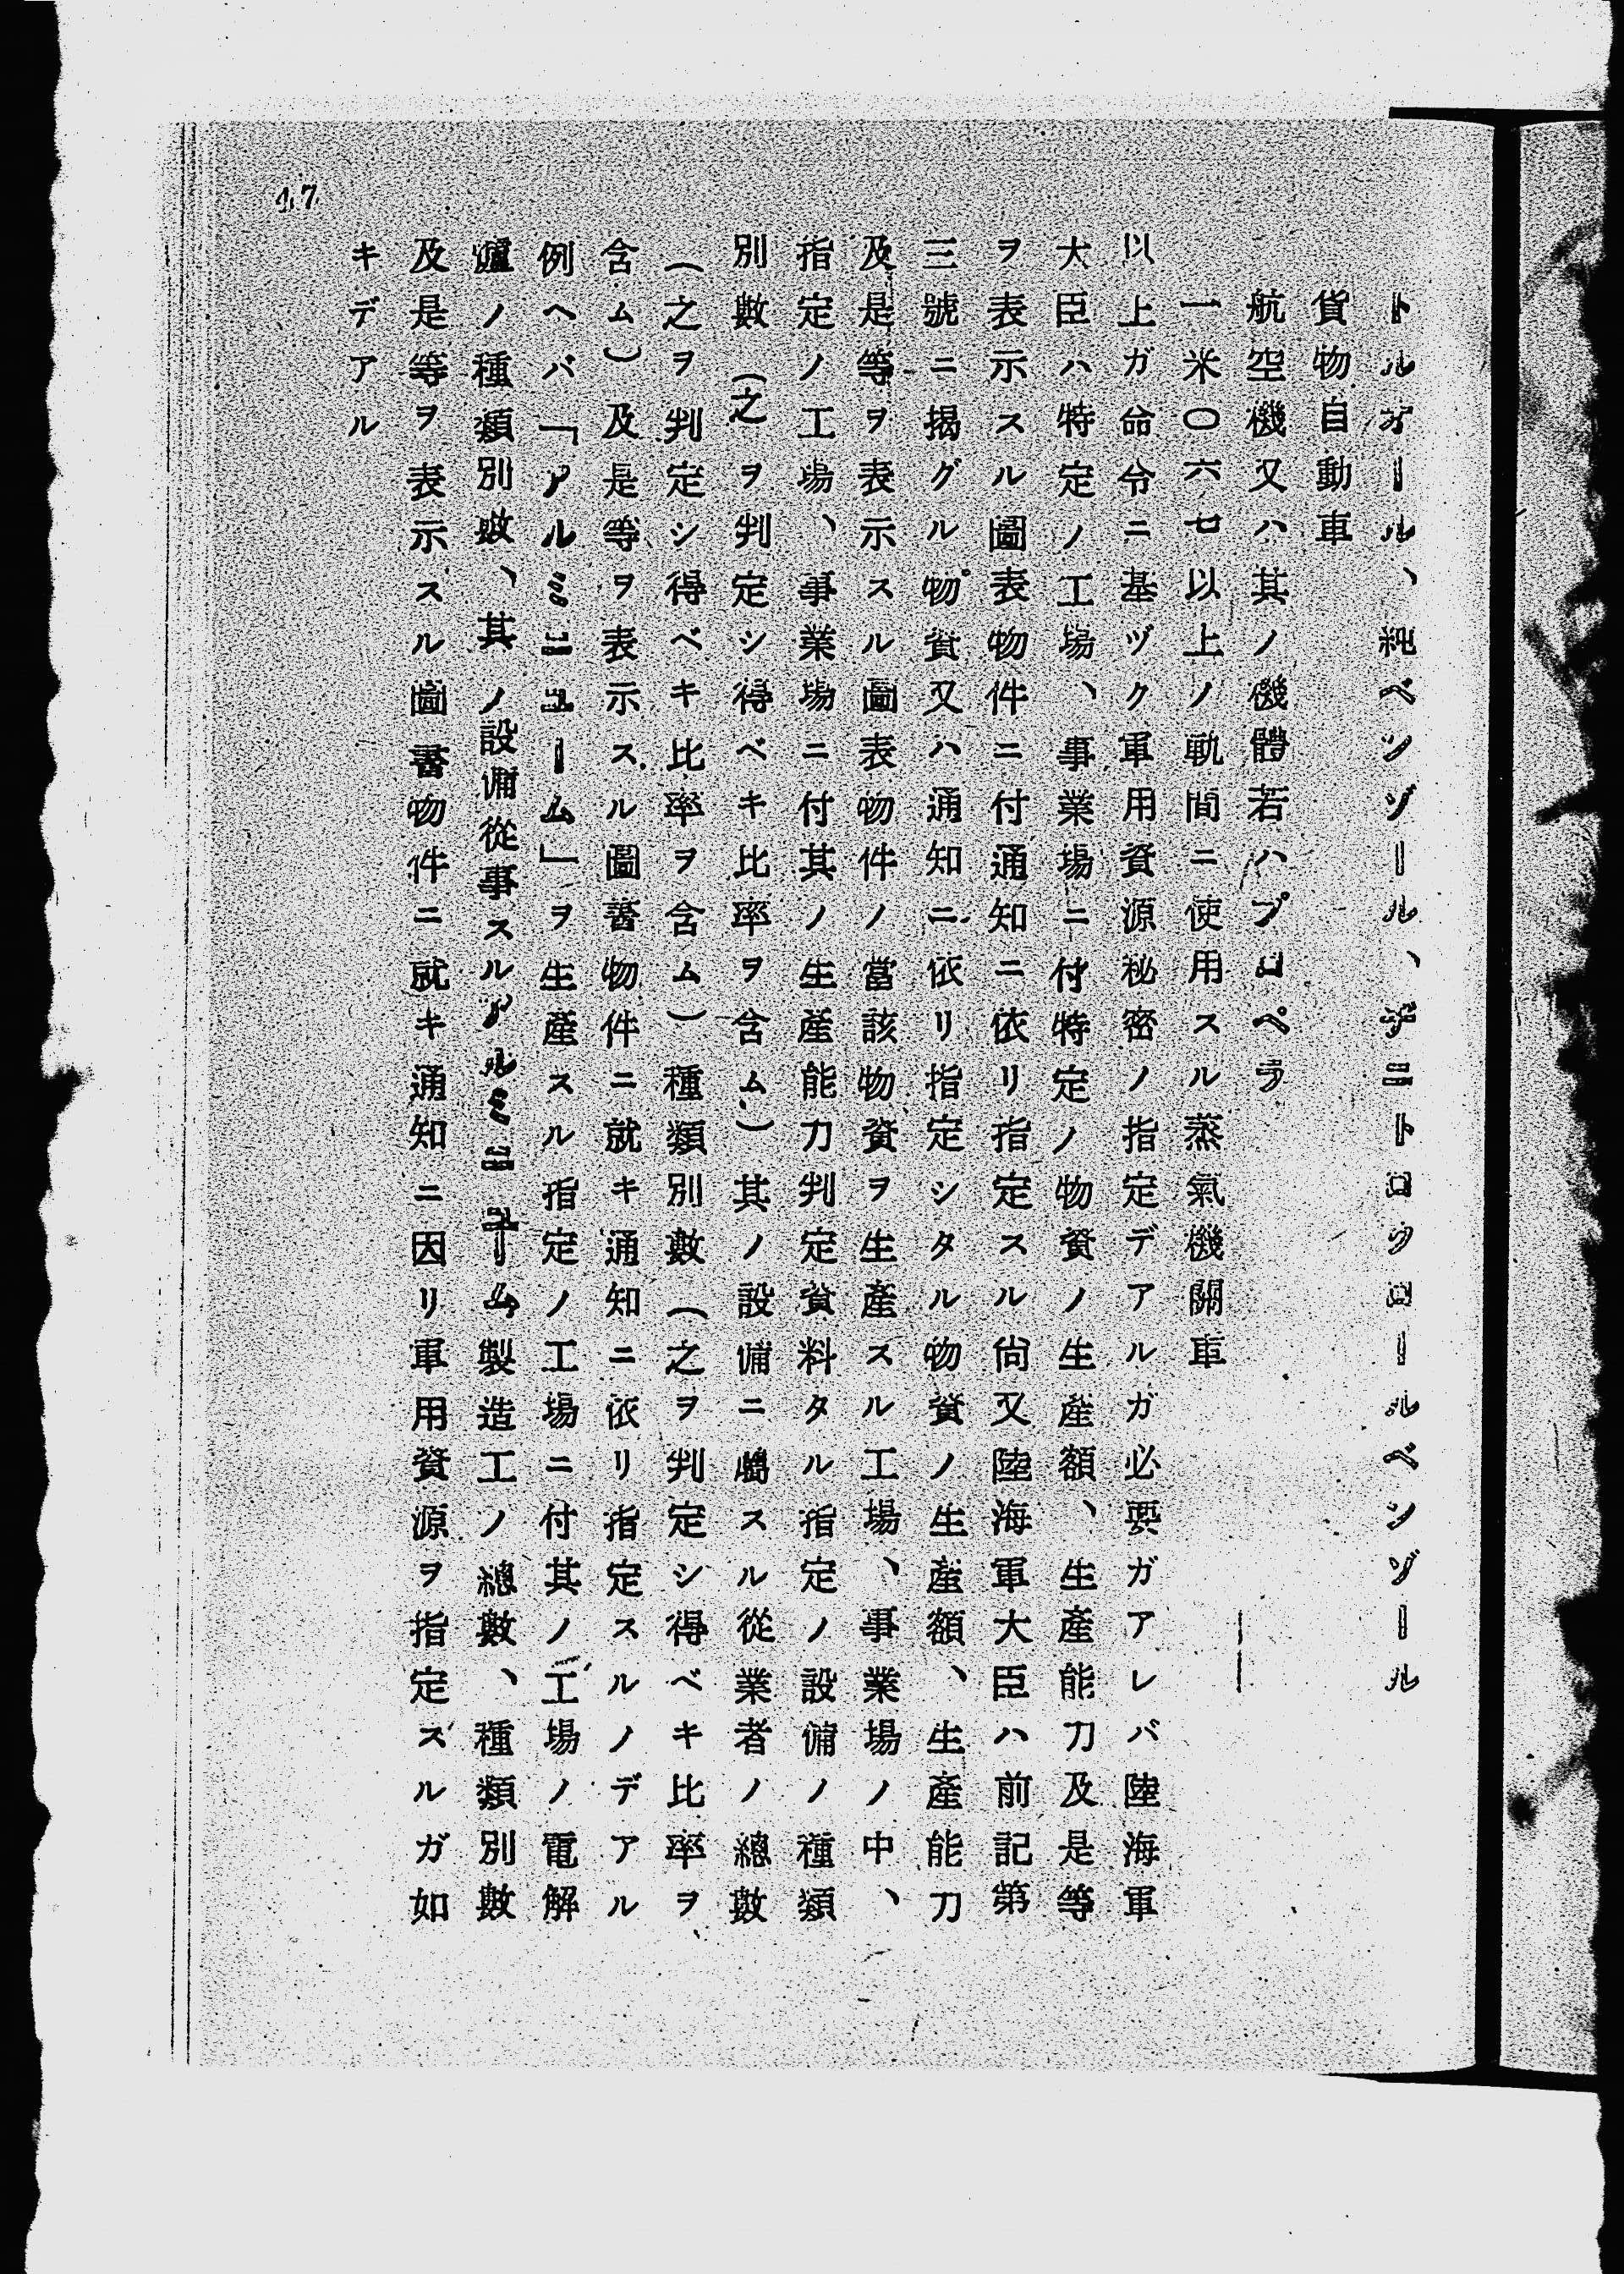 トルオール、純ベンゾール、ヂニトロクロールベンゾール
貨物自動車
航空機又ハ其ノ機體若ハプロペラ
一米〇六七以上ノ軌間ニ使用スル蒸氣機關車
以上ガ命令ニ基ヅク軍用資源秘密ノ指定デアルガ必要ガアレバ陸海軍
大臣ハ特定ノ工場、事業場ニ付特定ノ物資ノ生產額、生產能力及是等
ヲ表示スル圖表物件ニ付通知ニ依リ指定スル尙又陸海軍大臣ハ前記第
三號ニ揭グル物資又ハ通知ニ依リ指定シタル物資ノ生產額、生產能力
及是等ヲ表示スル圖表物件ノ當該物資ヲ生產スル工場、事業場ノ中、
指定ノ工場、事業場ニ付其ノ生產能力判定資料タル指定ノ設備ノ種類
別數（之ヲ判定シ得ベキ比率ヲ含ム）其ノ設備ニ屬スル從業者ノ總數
（之ヲ判定シ得ベキ比率ヲ含ム）種類別數（之ヲ判定シ得ベキ比率ヲ
含ム）及是等ヲ表示スル圖書物件ニ就キ通知ニ依リ指定スルノデアル
例ヘバ「アルミニユーム」ヲ生產スル指定ノ工場ニ付其ノ工場ノ電解
爐ノ種類別數、其ノ設備從事スルアルミニユーム製造工ノ總數、種類別數
及是等ヲ表示スル圖書物件ニ就キ通知ニ因リ軍用資源ヲ指定スルガ如
キデアル
47